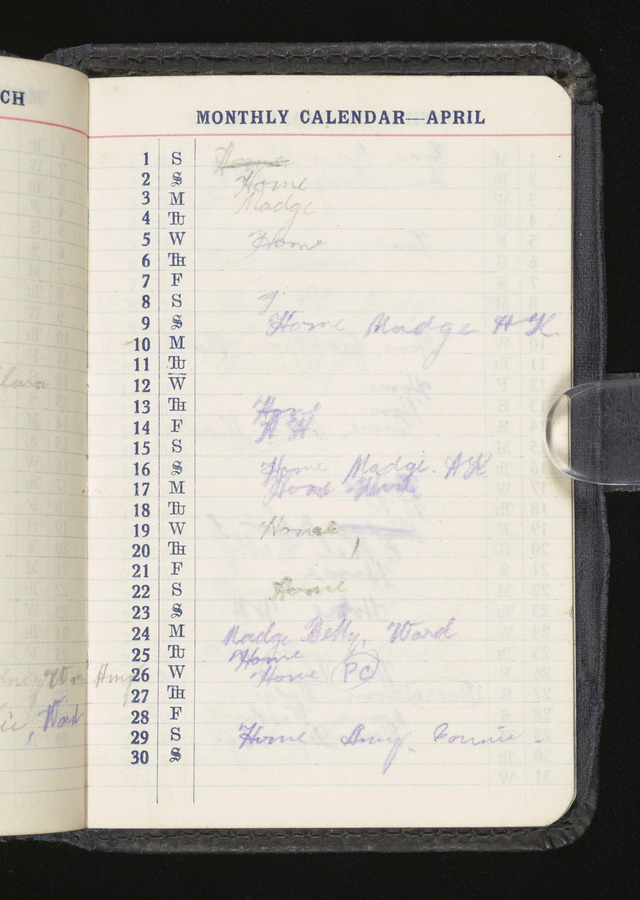 CH
MONTHLY CALENDAR—APRIL
1 S Home
2 S Home
3 M Madge
4 TU
5 W Home
6 TH
7 F
8 S
9 S Home Madge AK
10 M
11 TU
12 W
13 TH Home
14 F A H.
15 S
16 S Home Madge. AK
17 M Home
18 TU
19 W Home
20 TH
21 F
22 S Home
23 S
24 M Madge Betty, Ward
25 TU Home
26 W Home PC
27 TH
28 F
29 S Home Amy. Connie
30 S
Amy
Ward